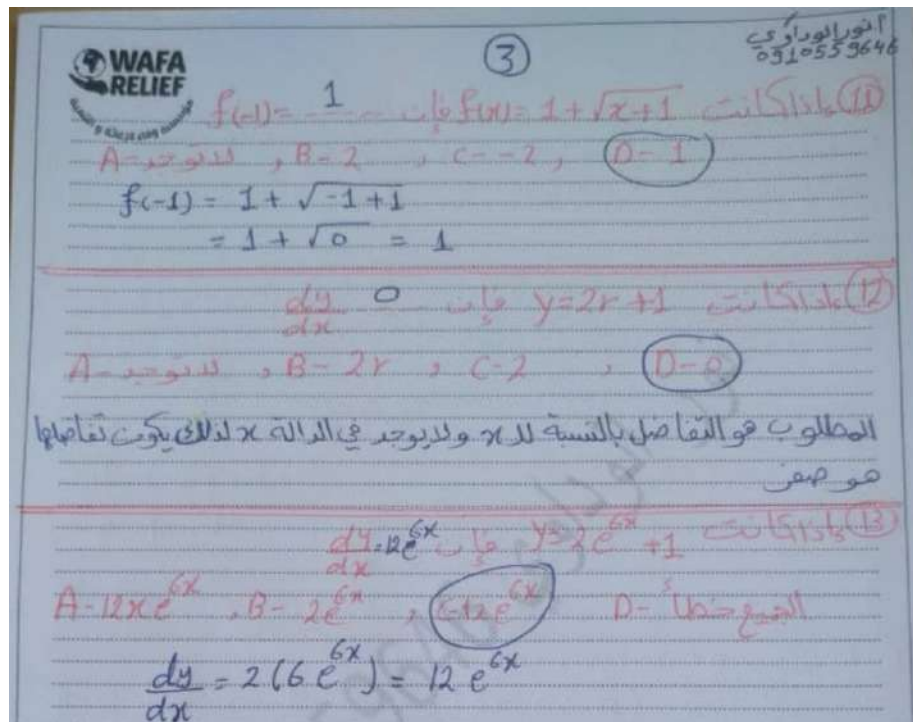 WAFA
RELIEF
3
أنور الوداوي
0910559646
11 إذا كانت f(x) = 1 + √x+1 فإن f(-1) = 1
A - لا توجد , B - 2 , C - -2 , D - 1
f(-1) = 1 + √-1+1
= 1 + √0 = 1
12 إذا كانت y = 2r + 1 فإن dy/dx 0
A - لا توجد , B - 2r , C - 2 , D - 0
المطلوب هو التفاضل بالنسبة لل x ولا يوجد في الدالة x لذلك يكون تفاضلها
هو صفر
13 إذا كانت y = 2e^6x + 1 فإن dy/dx = 12e^6x
A - 12xe^6x , B - 2e^6x , C - 12e^6x D - الجميع خطأ
dy/dx = 2(6e^6x) = 12e^6x